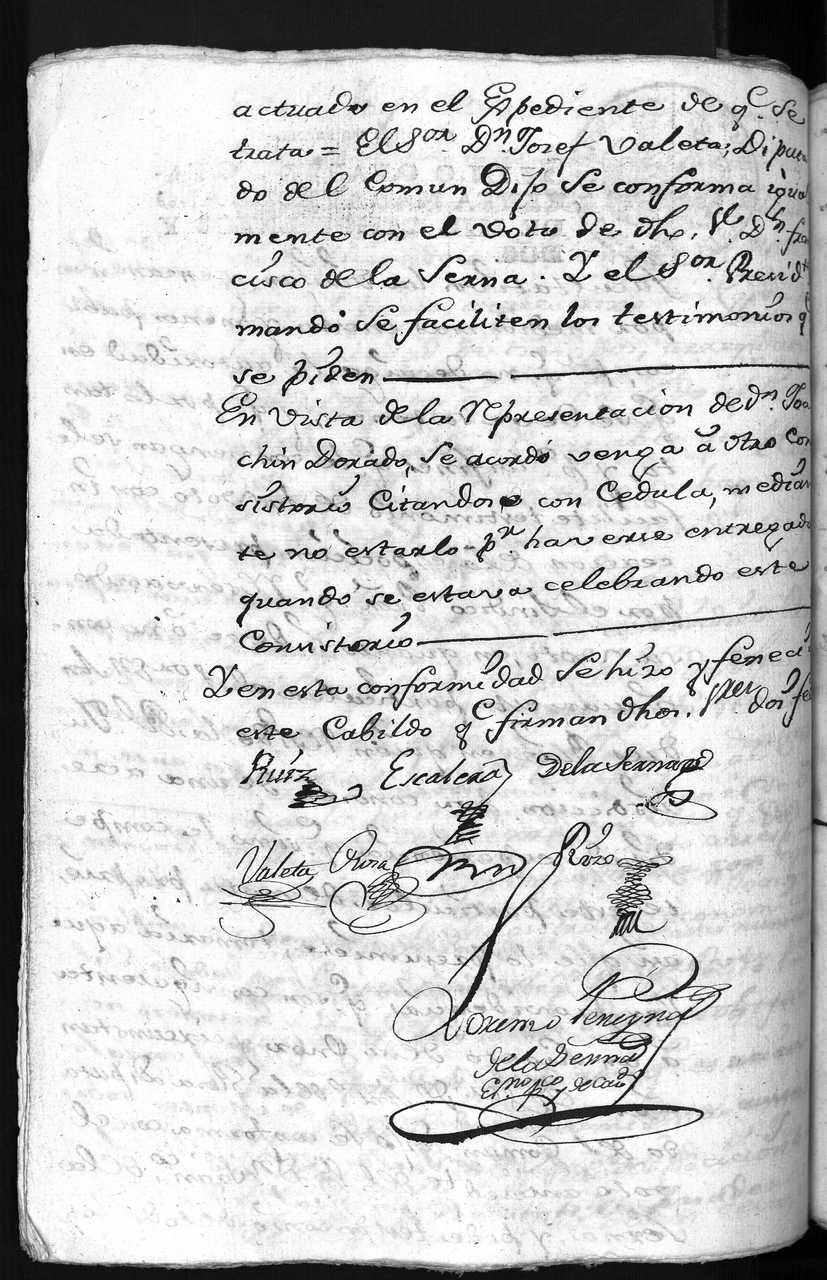 actuado en el Expediente de q.e se
trata = El S.or D.n Josef Valeta, Diputa
do del Comun Dijo se conforma igual
mente con el voto de dho. S.r D.n Fran
cisco de la Serna. Y el S.or Presid.te
mandó se faciliten los testimonios q.e
se piden
En vista de la Representacion de d.n Joa
chin Dorado, se acordó venga á otro Con
sistorio Citandose con Cedula, median
te no estarlo p.r haverse entregado
quando se estava celebrando este
Consistorio
Y en esta conformidad se hizo y feneció
este Cabildo q.e firman dhos. S.res doy fe
Ruiz Escalera De la Serna
Valeta Rosa Rozo
Lorenzo Pereyra
de la Serna
Es.no p.co y de cav.do